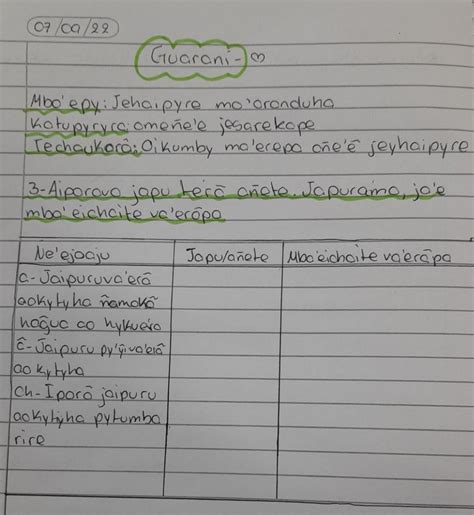 07/09/22
Guarani-
Mbo'epy: Jehaipyre mo'oranduha
Katupyryrã: omeñe'ẽ jesarekope
Techaukarã: Oikumby ma'erepa oñe'ẽ jeyhaipyre
3-Aiporavo japu terã añete. Japurãmo, ja'e
mba'eichaite va'erãpa
Ne'ẽjoaju
Japu/añete
Mba'eichaite va'erãpa
a-Jaipuruva'erã
aokytyha ñamokã
haguã ao hykuéva
ẽ-Jaipuru py'ỹiva'erã
ao kytyha
ch-Iporã jaipuru
aokytyha pytumba
rire